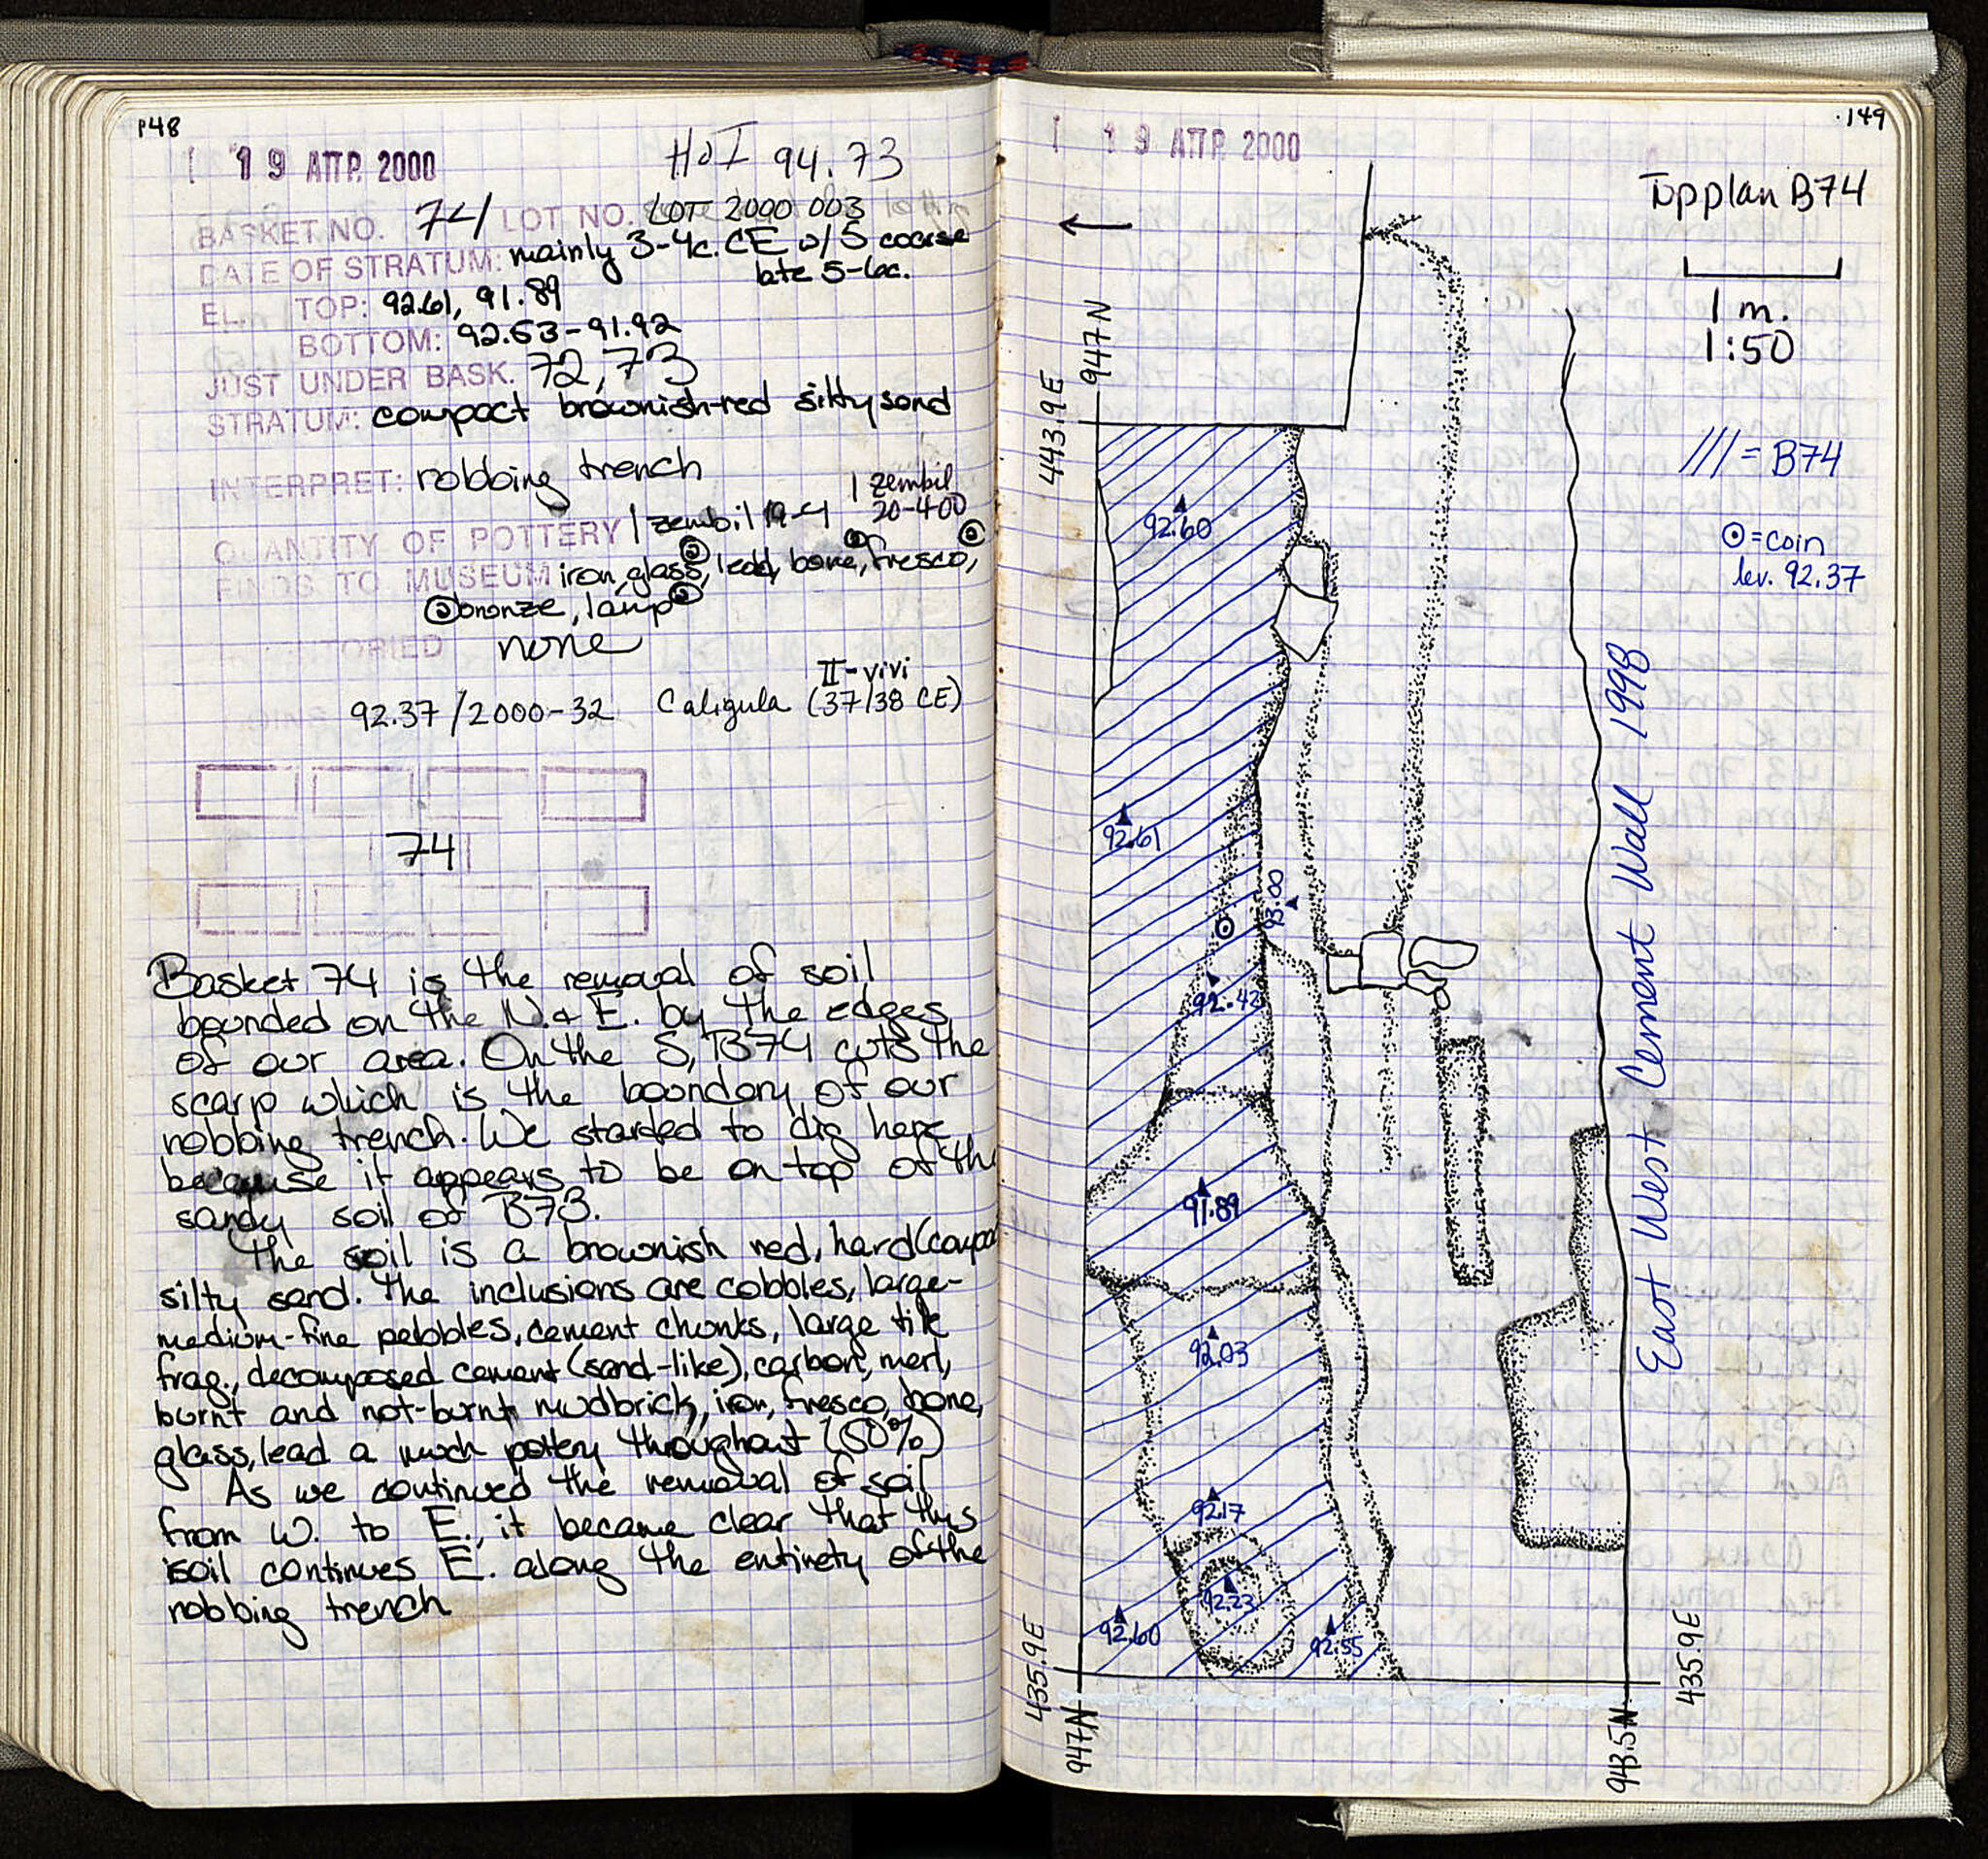 148
19 ΑΠΡ. 2000
HoI 94.73
BASKET NO. 74 LOT NO. LOT 2000 003
DATE OF STRATUM: mainly 3-4c. CE w/ 5 coarse
late 5-6c.
EL. TOP: 92.61, 91.89
BOTTOM: 92.53-91.92
JUST UNDER BASK. 72, 73
STRATUM: compact brownish-red silty sand
INTERPRET: robbing trench
1 zembil
QUANTITY OF POTTERY 1 zembil 19-4 20-4-00
FINDS TO MUSEUM iron, glass, lead, bone, fresco,
bronze, lamp
TORIED none
II-vivi
92.37/2000-32 Caligula (37/38 CE)
74
Basket 74 is the removal of soil
bounded on the N. & E. by the edges
of our area. On the S, B74 cuts the
scarp which is the boundary of our
robbing trench. We started to dig here
because it appears to be on top of the
sandy soil of B73.
The soil is a brownish red, hard (compac
silty sand. The inclusions are cobbles, large-
medium-fine pebbles, cement chunks, large tile
frag., decomposed cement (sand-like), carbon, marl,
burnt and not-burnt mudbrick, iron, fresco, bone,
glass, lead a much pottery throughout (50%)
As we continued the removal of soil
from W. to E., it became clear that this
soil continues E. along the entirety of the
robbing trench
149
19 ΑΠΡ. 2000
Topplan B74
1 m.
1:50
947N
443.9E
/// = B74
⊙ = coin
lev. 92.37
92.60
92.61
93.00
92.42
91.89
92.03
92.17
92.23
92.60
92.55
East West Cement Wall 1998
435.9E
947N
435.9E
943.5N